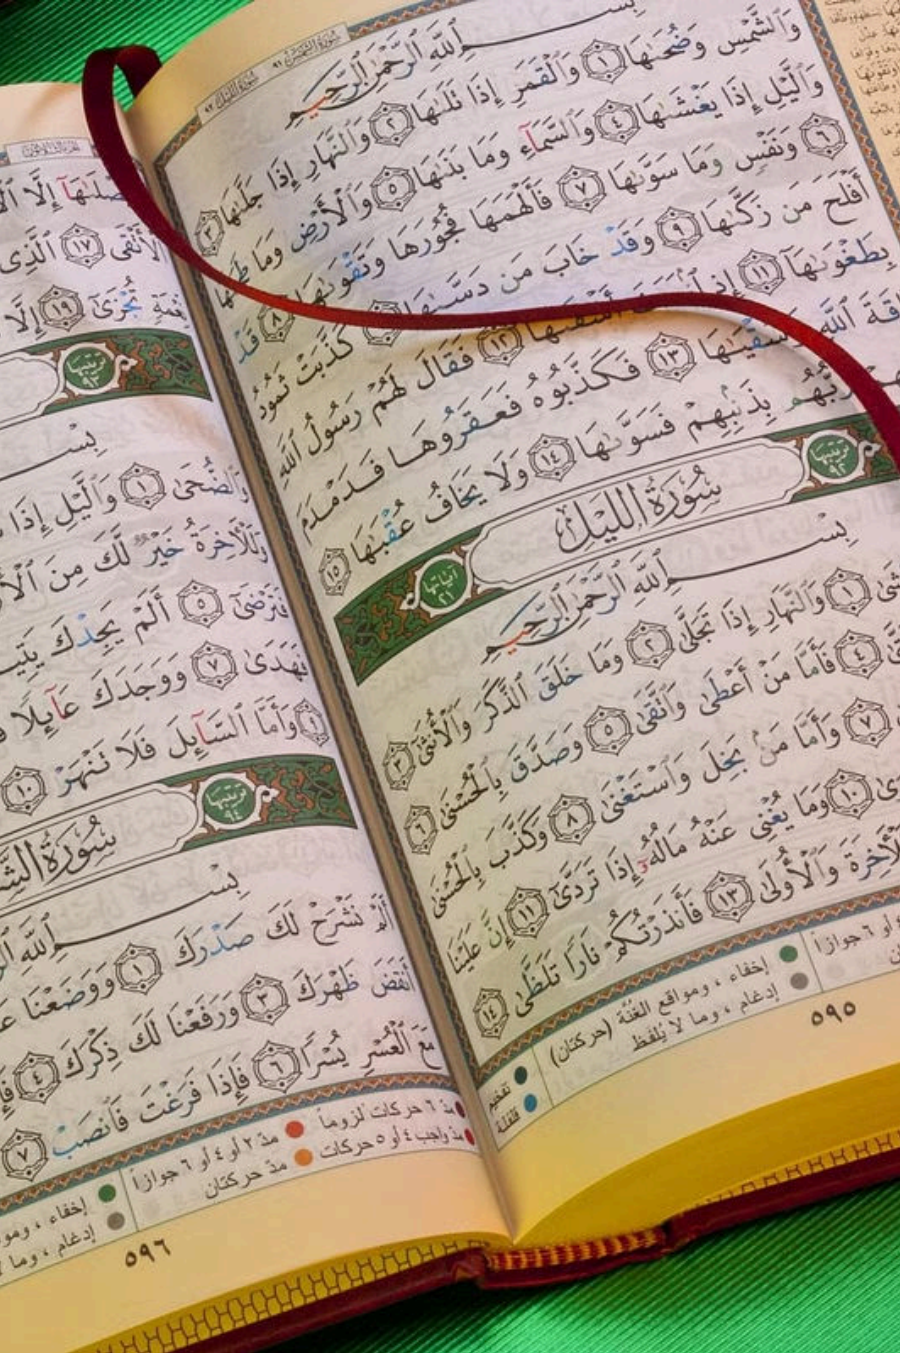 سُورَةُ الشَّمْسِ ٩١ سُورَةُ اللَّيْلِ ٩٢
بِسْمِ ٱللَّهِ ٱلرَّحْمَٰنِ ٱلرَّحِيمِ
وَٱلشَّمْسِ وَضُحَىٰهَا ١ وَٱلْقَمَرِ إِذَا تَلَىٰهَا ٢ وَٱلنَّهَارِ إِذَا جَلَّىٰهَا ٣
وَٱلَّيْلِ إِذَا يَغْشَىٰهَا ٤ وَٱلسَّمَآءِ وَمَا بَنَىٰهَا ٥ وَٱلْأَرْضِ وَمَا طَحَىٰهَا
٦ وَنَفْسٍ وَمَا سَوَّىٰهَا ٧ فَأَلْهَمَهَا فُجُورَهَا وَتَقْوَىٰهَا ٨ قَدْ
أَفْلَحَ مَن زَكَّىٰهَا ٩ وَقَدْ خَابَ مَن دَسَّىٰهَا كَذَّبَتْ ثَمُودُ
بِطَغْوَىٰهَآ ١١ إِذِ ٱنۢبَعَثَ أَشْقَىٰهَا ١٢ فَقَالَ لَهُمْ رَسُولُ ٱللَّهِ
ٱللَّهِ وَسُقْيَـٰهَا ١٣ فَكَذَّبُوهُ فَعَقَرُوهَا فَدَمْدَمَ
رَبُّهُم بِذَنۢبِهِمْ فَسَوَّىٰهَا ١٤ وَلَا يَخَافُ عُقْبَـٰهَا ١٥
تَرْتِيبُهَا ٩٢ سُورَةُ اللَّيْلِ آيَاتُهَا ٢١
بِسْمِ ٱللَّهِ ٱلرَّحْمَٰنِ ٱلرَّحِيمِ
١ وَٱلنَّهَارِ إِذَا تَجَلَّىٰ ٢ وَمَا خَلَقَ ٱلذَّكَرَ وَٱلْأُنثَىٰٓ ٣
٤ فَأَمَّا مَنْ أَعْطَىٰ وَٱتَّقَىٰ ٥ وَصَدَّقَ بِٱلْحُسْنَىٰ ٦
٧ وَأَمَّا مَنۢ بَخِلَ وَٱسْتَغْنَىٰ ٨ وَكَذَّبَ بِٱلْحُسْنَىٰ
١٠ وَمَا يُغْنِى عَنْهُ مَالُهُۥٓ إِذَا تَرَدَّىٰٓ ١١ إِنَّ عَلَيْنَا
لَلْءَاخِرَةَ وَٱلْأُولَىٰ ١٣ فَأَنذَرْتُكُمْ نَارًا تَلَظَّىٰ ١٤
أو ٦ جوازاً
إخفاء ، ومواقع الغُنَّة (حركتان)
إدغام ، وما لا يُلفَظ
تفخيم
قلقلة
٥٩٥
ٱلْأَتْقَى ١٧ ٱلَّذِى
نِّعْمَةٍ تُجْزَىٰٓ ١٩ إِلَّا
تَرْتِيبُهَا ٩٣
بِسْمِ
وَٱلضُّحَىٰ ١ وَٱلَّيْلِ إِذَا
وَلَلْءَاخِرَةُ خَيْرٌ لَّكَ مِنَ
فَتَرْضَىٰٓ ٥ أَلَمْ يَجِدْكَ
فَهَدَىٰ ٧ وَوَجَدَكَ عَآئِلًا
وَأَمَّا ٱلسَّآئِلَ فَلَا تَنْهَرْ ١٠
تَرْتِيبُهَا ٩٤
سُورَةُ
بِسْمِ ٱللَّهِ
أَلَمْ نَشْرَحْ لَكَ صَدْرَكَ ١ وَوَضَعْنَا
أَنقَضَ ظَهْرَكَ ٣ وَرَفَعْنَا لَكَ ذِكْرَكَ ٤
مَعَ ٱلْعُسْرِ يُسْرًا ٦ فَإِذَا فَرَغْتَ فَٱنصَبْ ٧
مدّ ٦ حركات لزوماً مدّ ٢ أو ٤ أو ٦ جوازاً
مدّ واجب ٤ أو ٥ حركات مدّ حركتان
إخفاء ،
إدغام ، وما
٥٩٦